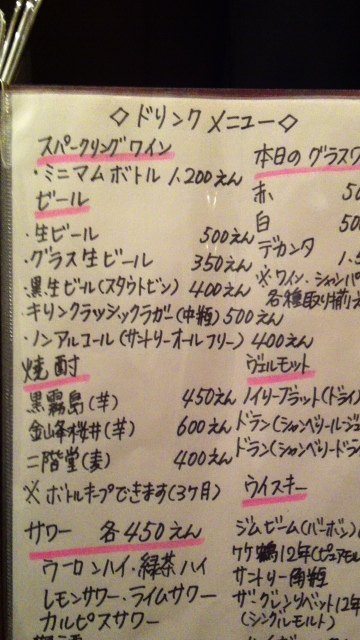 ◇ドリンクメニュー◇
スパークリングワイン
・ミニマムボトル 1,200えん
ビール
・生ビール 500えん
・グラス生ビール 350えん
・黒生ビール(スタウトビン) 400えん
・キリンクラッシックラガー(中瓶) 500えん
・ノンアルコール(サントリーオールフリー) 400えん
焼酎
黒霧島(芋) 450えん
金峰桜井(芋) 600えん
二階堂(麦) 400えん
※ボトルキープできます(3ヶ月)
サワー 各450えん
ウーロンハイ・緑茶ハイ
レモンサワー・ライムサワー
カルピスサワー
本日のグラスワ
赤 50
白 500
デカンタ 1.5
※ワイン・シャンパ
各種取り揃え
ヴェルモット
ノイリープラット(ドライ
ドラン(シャンベリールージュ
ドラン(シャンベリードラ
ウイスキー
ジムビーム(バーボン)
竹鶴12年(ピュアモル
サントリー角瓶
ザ・グレンリベット12年
(シングルモルト)